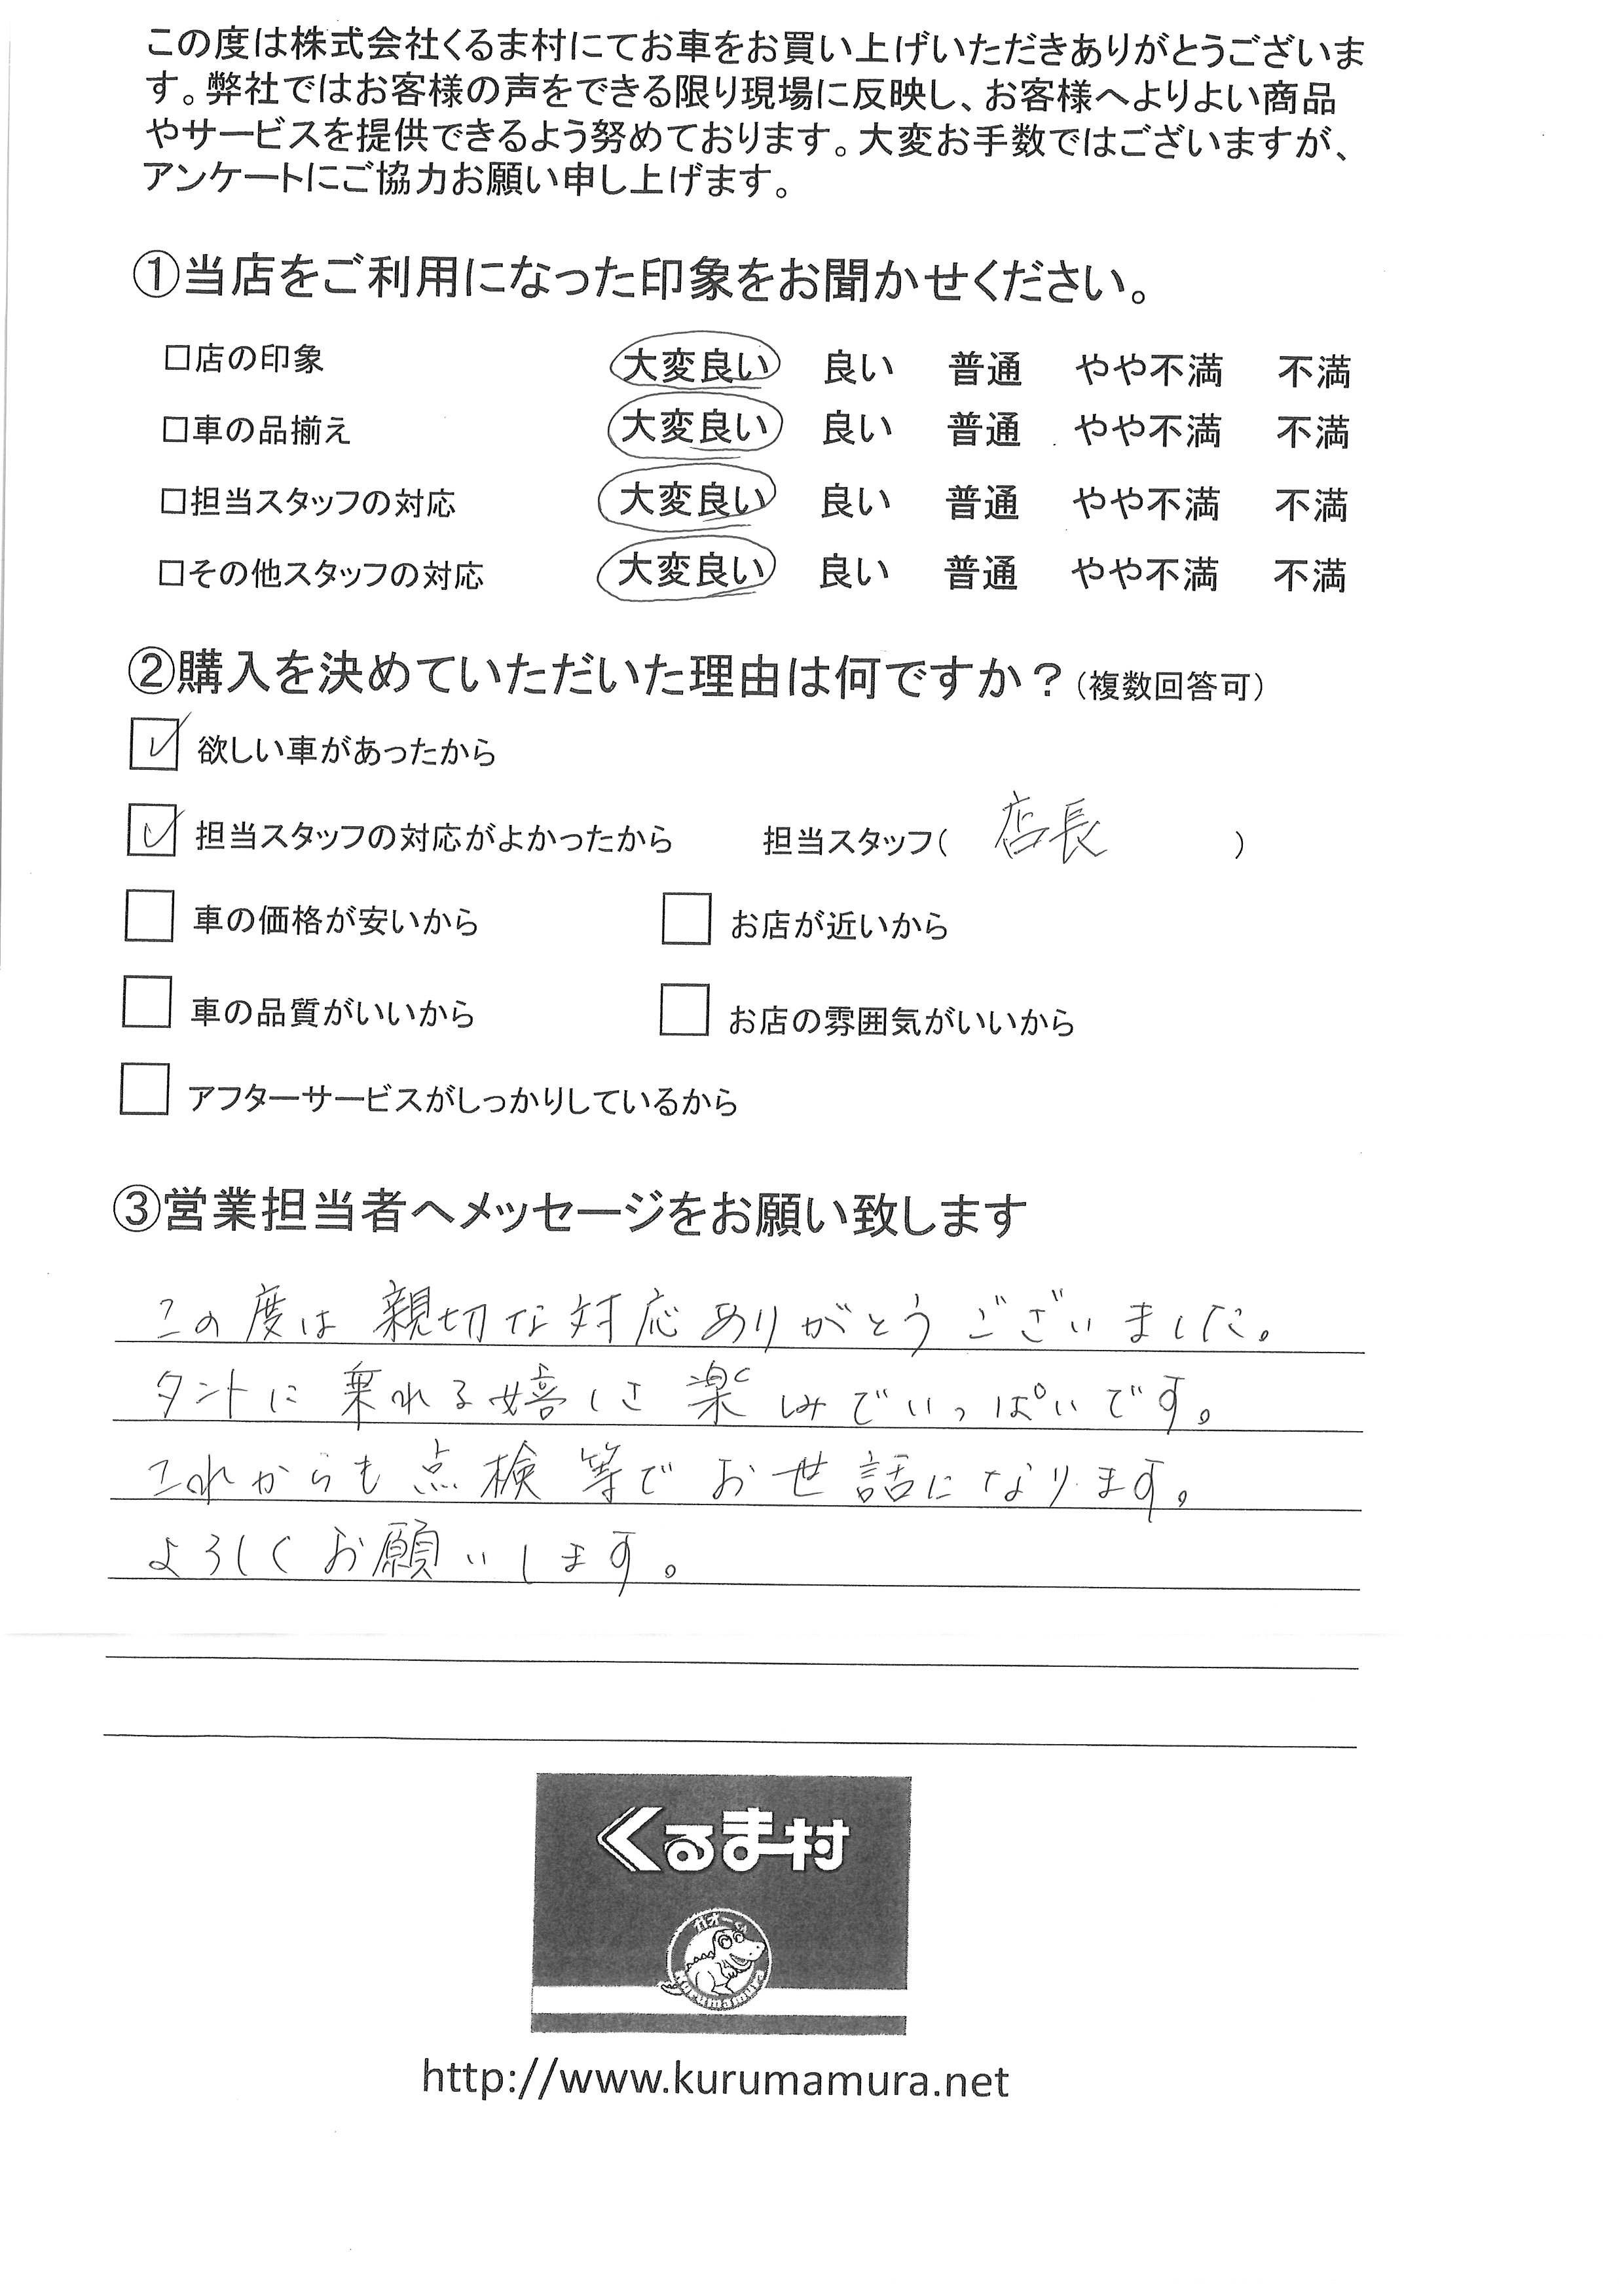 この度は株式会社くるま村にてお車をお買い上げいただきありがとうございま
す。弊社ではお客様の声をできる限り現場に反映し、お客様へよりよい商品
やサービスを提供できるよう努めております。大変お手数ではございますが、
アンケートにご協力お願い申し上げます。
①当店をご利用になった印象をお聞かせください。
□店の印象 大変良い 良い 普通 やや不満 不満
□車の品揃え 大変良い 良い 普通 やや不満 不満
□担当スタッフの対応 大変良い 良い 普通 やや不満 不満
□その他スタッフの対応 大変良い 良い 普通 やや不満 不満
②購入を決めていただいた理由は何ですか？（複数回答可）
欲しい車があったから
担当スタッフの対応がよかったから 担当スタッフ（ 店長 ）
車の価格が安いから お店が近いから
車の品質がいいから お店の雰囲気がいいから
アフターサービスがしっかりしているから
③営業担当者へメッセージをお願い致します
この度は親切な対応ありがとうございました。
タントに乗れる嬉しさ楽しみでいっぱいです。
これからも点検等でお世話になります。
よろしくお願いします。
くるま村
ガオーくん
Kurumamura
http://www.kurumamura.net